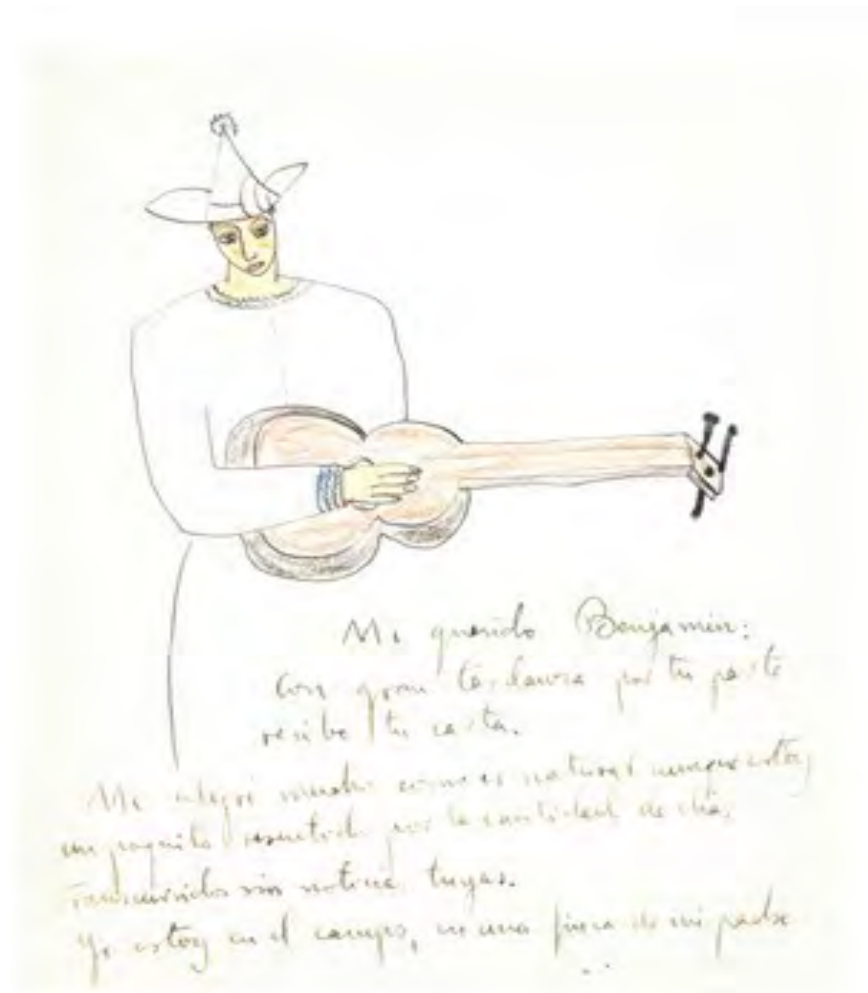 Mi querido Benjamin:
Con gran tardanza por tu parte
recibo tu carta.
Me alegró mucho como es natural aunque estoy
un poquito resentido por la cantidad de días
transcurridos sin noticias tuyas.
Yo estoy en el campo, en una finca de mi padre